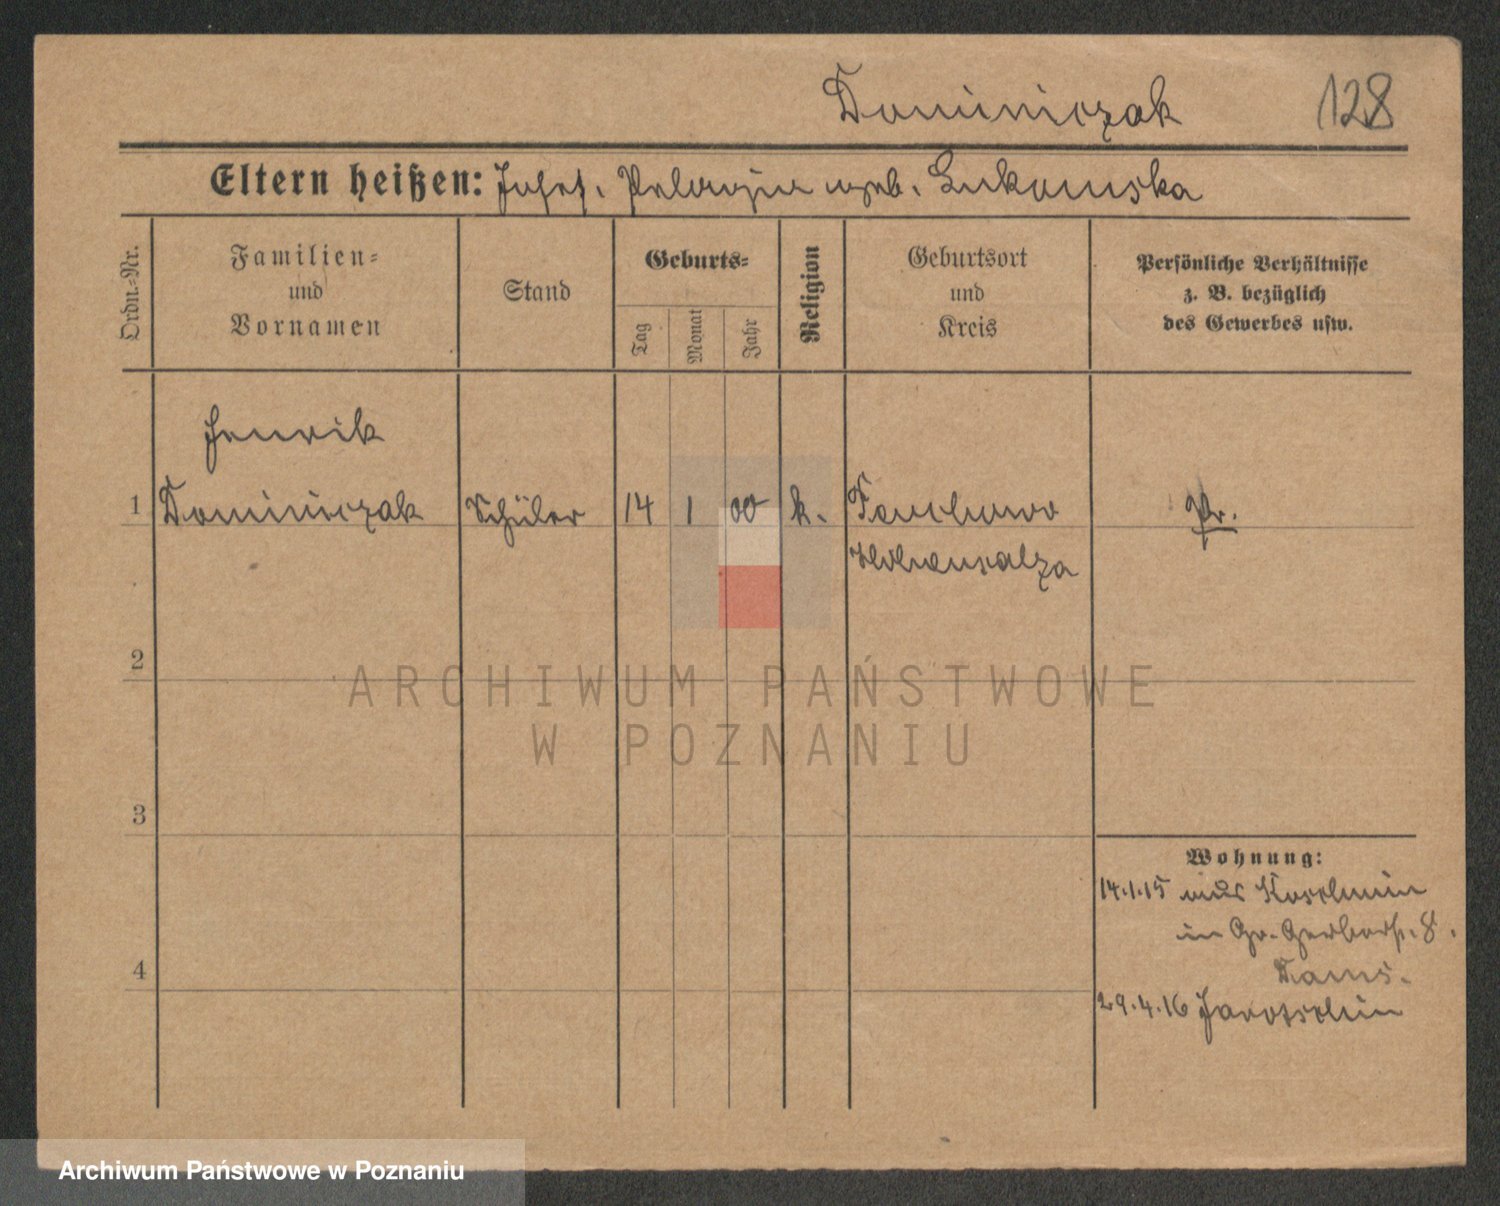 Dominiczak 128
Eltern heißen: Josef. Pelagia geb. Lukomska
Ordn.=Nr.
Familien=
und
Vornamen
Stand
Geburts=
Tag
Monat
Jahr
Religion
Geburtsort
und
Kreis
Persönliche Verhältnisse
z. B. bezüglich
des Gewerbes usw.
Henrik
1 Dominiczak Schüler 14 1 00 k. Pr.
Hohensalza
2
ARCHIWUM PAŃSTWOWE
W POZNANIU
3
Wohnung:
14.1.15 aus Koschmin
in Gr. Gerberst. 8.
4
29.4.16 Jarotschin
Archiwum Państwowe w Poznaniu